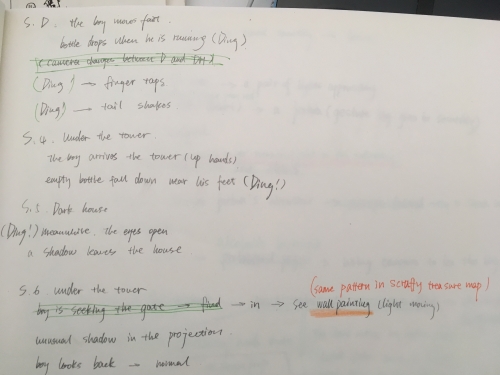 S. D. the boy moves fast.
bottle drops when he is running (Ding)
(camera changes between D and DH)
(Ding!) → finger taps
(Ding!) → tail shakes
S. 4. Under the tower.
the boy arrives the tower (up hands)
empty bottle fall down near his feet (Ding!)
S. 5. Dark house
(Ding!) meanwhile. the eyes open
a shadow leaves the house
S. 6. under the tower
(same pattern in scruffy treasure map)
boy is seeking the gate → find → in → see wall painting (light moving)
unusual shadow in the projection.
boy looks back → normal